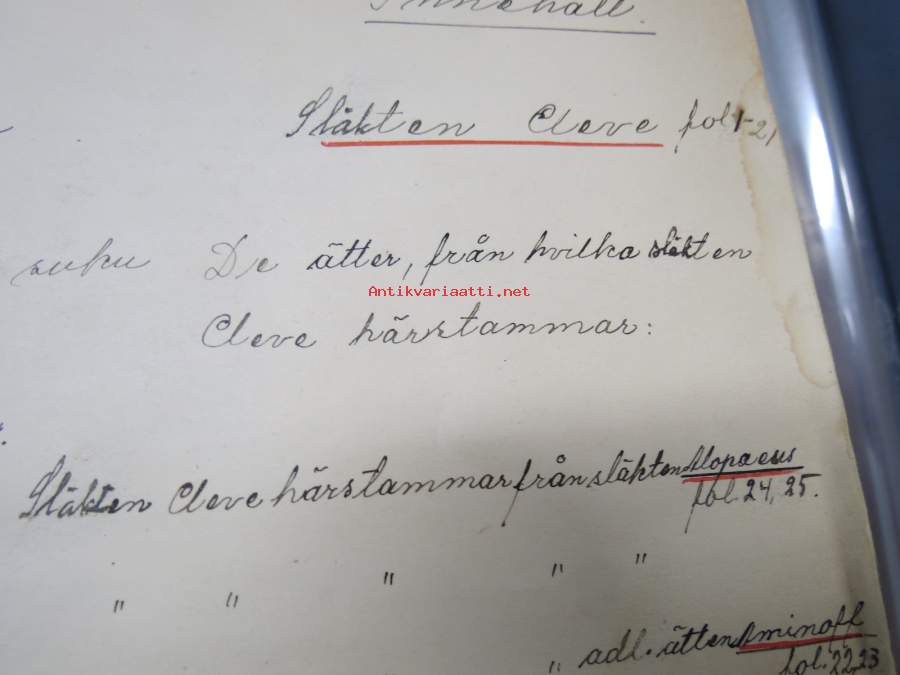 Innehåll.
Släkten Cleve fol 1-21
suku De ätter, från hvilka släkten
Antikvariaatti.net
Cleve härstammar:
Släkten Cleve härstammar från släkten Alopaeus
fol. 24, 25.
" " " " "
" adl. ätten Aminoff
fol. 22, 23